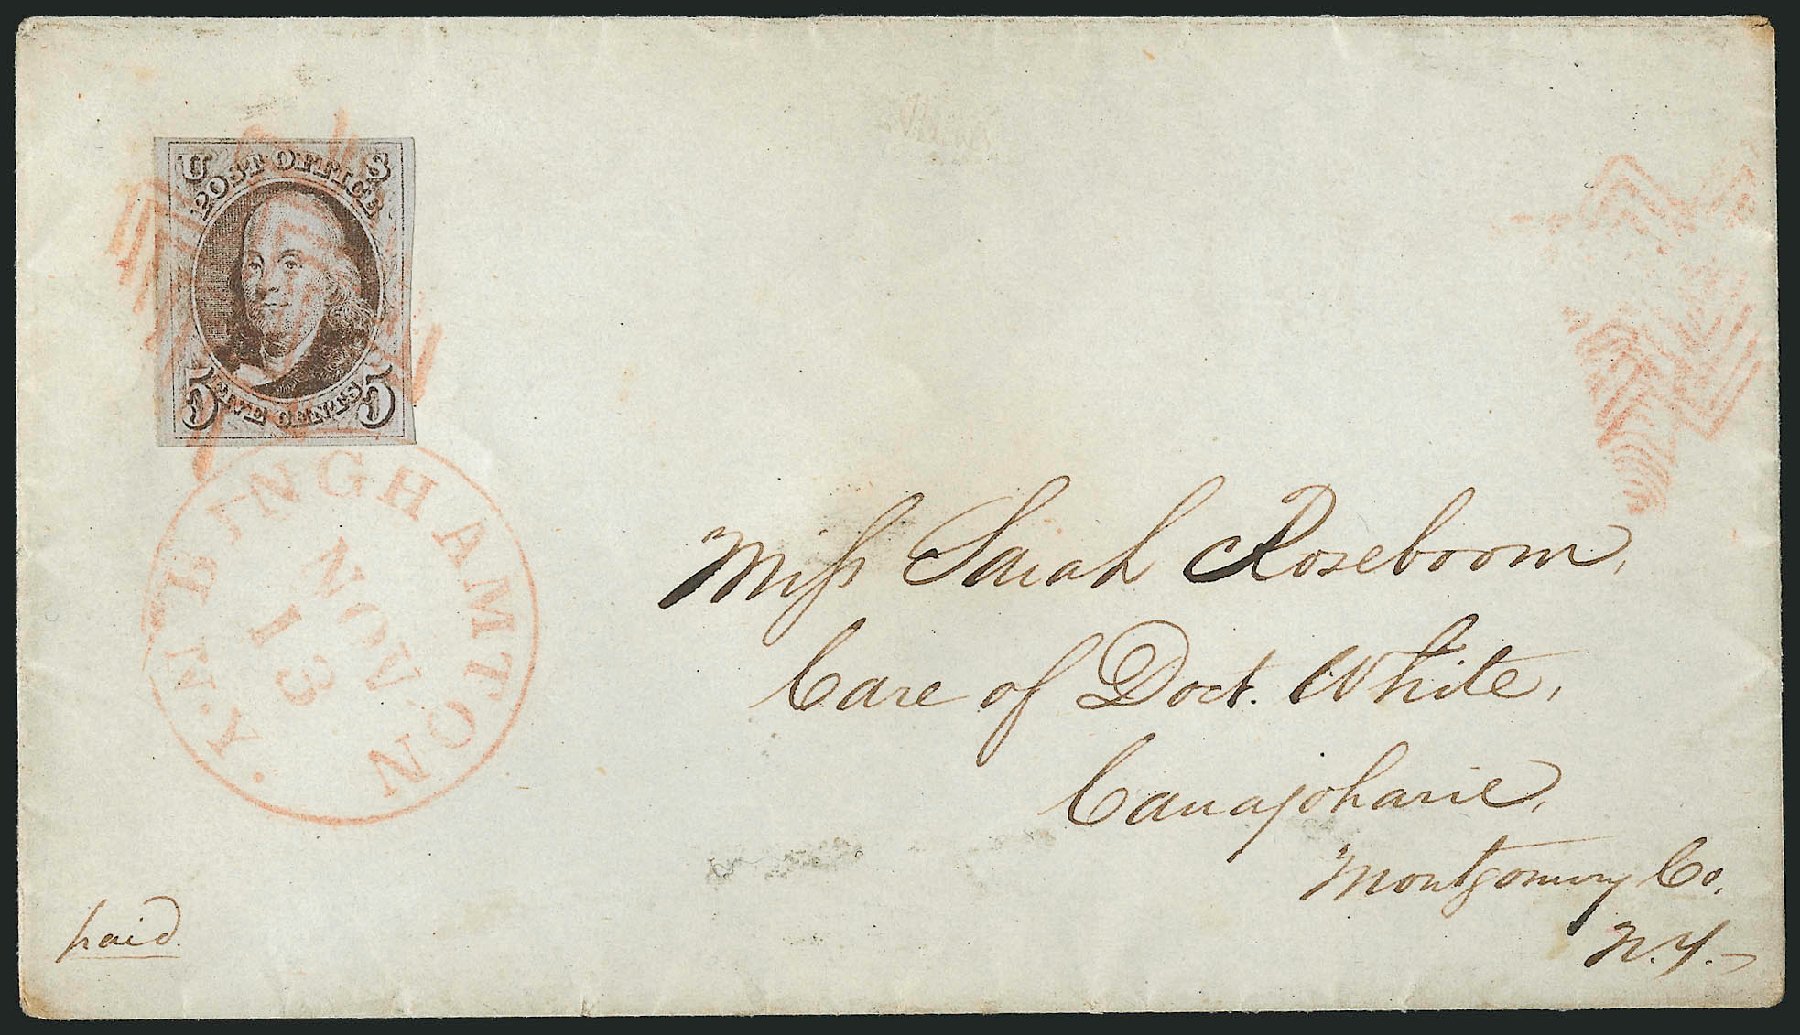 U S
POST OFFICE
5 FIVE CENTS 5
BINGHAMTON
N.Y.
NOV
13
Miſs Sarah Roseboom,
Care of Doct. White,
Canajoharie,
Montgomery Co.
N.Y.
paid